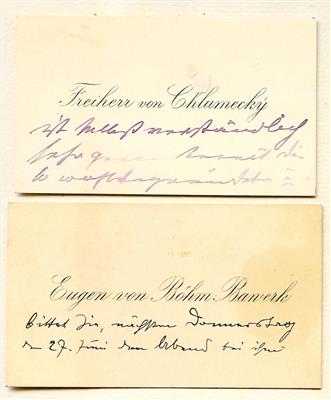 Freiherr von Chlumecký
ist selbstverständlich
sehr gerne bereit die
so wohlbegründete
Eugen von Böhm Bawerk
bittet Sie, nächsten Donnerstag
den 27. Juni den Abend bei ihm